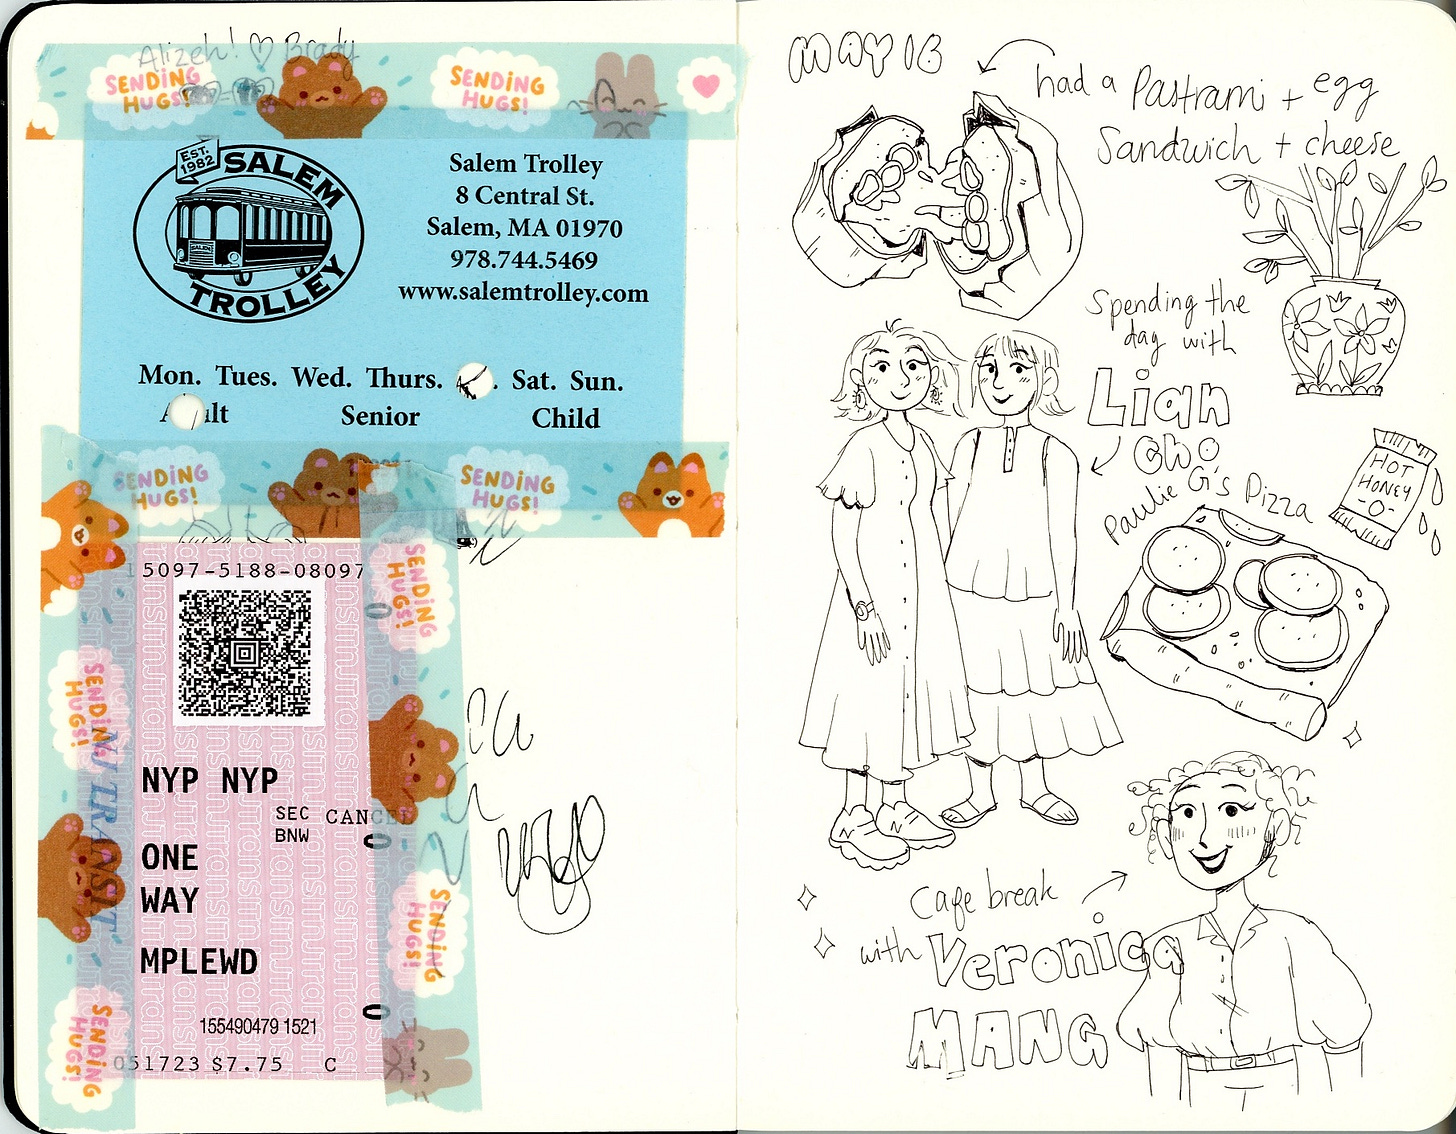 Alizeh! ♡ Brady
SENDING HUGS!
SENDING HUGS!
EST. 1982
SALEM TROLLEY
SALEM
Salem Trolley
8 Central St.
Salem, MA 01970
978.744.5469
www.salemtrolley.com
Mon. Tues. Wed. Thurs. Sat. Sun.
Senior Child
SENDING HUGS!
SENDING HUGS!
SENDING HUGS!
SENDING HUGS!
SENDING HUGS!
SENDING HUGS!
5097-5188-08097
NJ TRANSIT
NYP NYP
SEC CANCEL
BNW
ONE
WAY
MPLEWD
155490479 1521
051723 $7.75 C
MAY 16
had a Pastrami + egg
Sandwich + cheese
Spending the
day with
Lian
Cho
Paulie G's Pizza
HOT
HONEY
-O-
N N
Cafe break
with Veronica
MANG